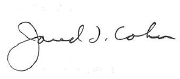 Jared L. Cohen